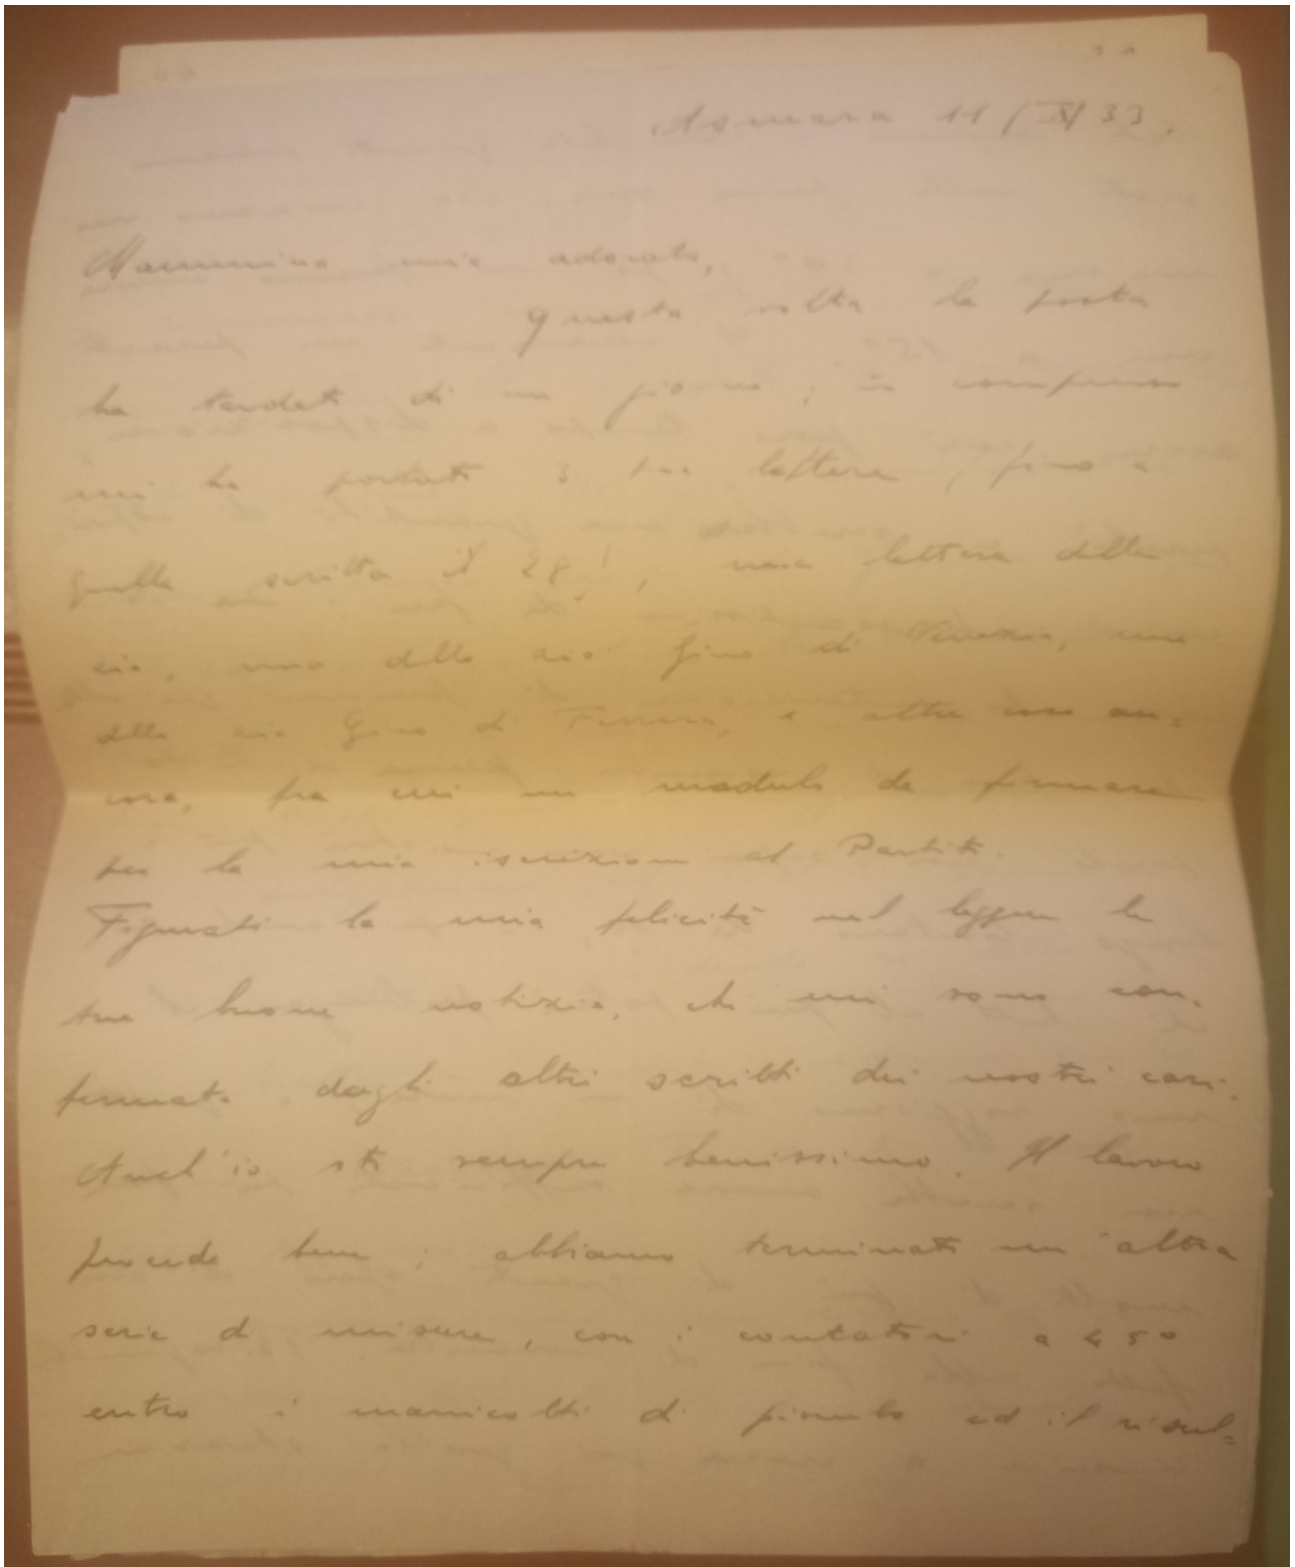 Asmara 11/X/33.
Mammina mia adorata,
questa volta la posta
ha tardato di un giorno; in compenso
mi ha portato 3 tue lettere, fino a
quella scritta il 28!, una lettera della
zia, una dello zio Gino di Venezia, una
dello zio Gino di Ferrara, e altre cose an-
cora, fra cui un modulo da firmare
per la mia iscrizione al Partito.
Figurati la mia felicità nel leggere le
tue buone notizie, che mi sono con-
fermate dagli altri scritti dei nostri cari.
Anch'io sto sempre benissimo. Il lavoro
procede bene; abbiamo terminato un'altra
serie di misure, con i contatori a 45°
entro i manicotti di piombo ed il risul=